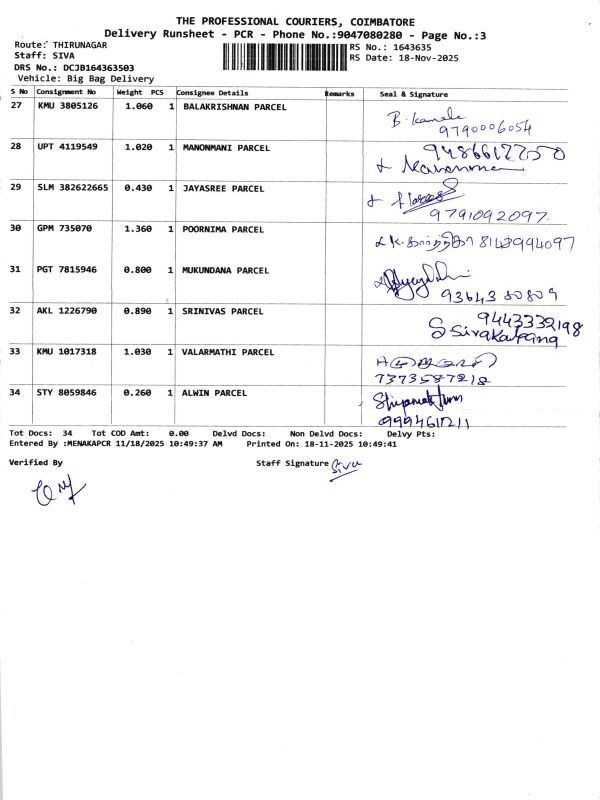 THE PROFESSIONAL COURIERS, COIMBATORE
Delivery Runsheet - PCR - Phone No.:9047080280 - Page No.:3
Route: THIRUNAGAR
Staff: SIVA
DRS No.: DCJB164363503
Vehicle: Big Bag Delivery
RS No.: 1643635
RS Date: 18-Nov-2025
S No Consignment No Weight PCS Consignee Details Remarks Seal & Signature
27 KMU 3805126 1.060 1 BALAKRISHNAN PARCEL
B. Kamala
9790006054
28 UPT 4119549 1.020 1 MANONMANI PARCEL
29 SLM 382622665 0.430 1 JAYASREE PARCEL
9791092097
30 GPM 735070 1.360 1 POORNIMA PARCEL
8143994097
31 PGT 7815946 0.800 1 MUKUNDANA PARCEL
93643 80809
32 AKL 1226790 0.890 1 SRINIVAS PARCEL
9443332198
S Sivakamana
33 KMU 1017318 1.030 1 VALARMATHI PARCEL
7373587218
34 STY 8059846 0.260 1 ALWIN PARCEL
9994617211
Tot Docs: 34 Tot COD Amt: 0.00 Delvd Docs: Non Delvd Docs: Delvy Pts:
Entered By :MENAKAPCR 11/18/2025 10:49:37 AM Printed On: 18-11-2025 10:49:41
Verified By
Staff Signature Siva